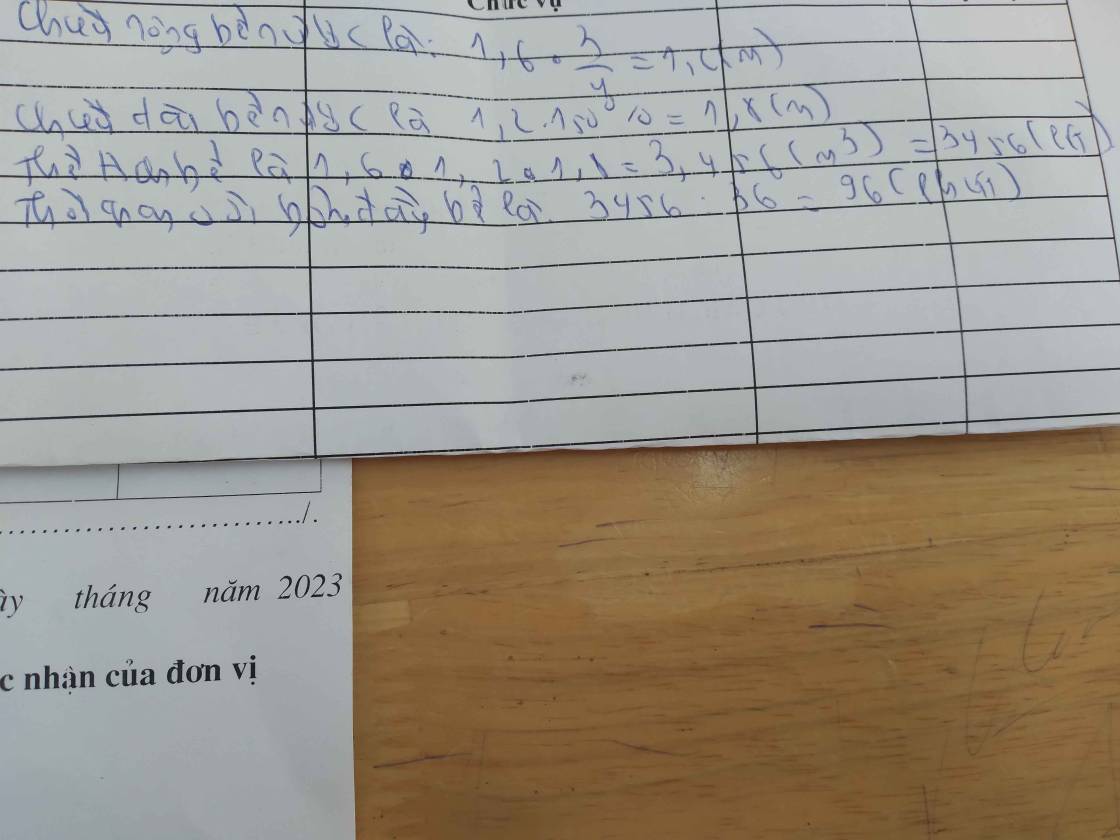 Chức vụ
Chiều rộng bể nước là: 1,6 . 3/4 = 1,2 (m)
Chiều dài bể nước là 1,2 . 150 % = 1,8 (m)
Thể tích bể là 1,6 . 1,2 . 1,8 = 3,456 (m³) = 3456 (lít)
Thời gian vòi bơm đầy bể là: 3456 : 36 = 96 (phút)
............................../.
tháng năm 2023
nhận của đơn vị